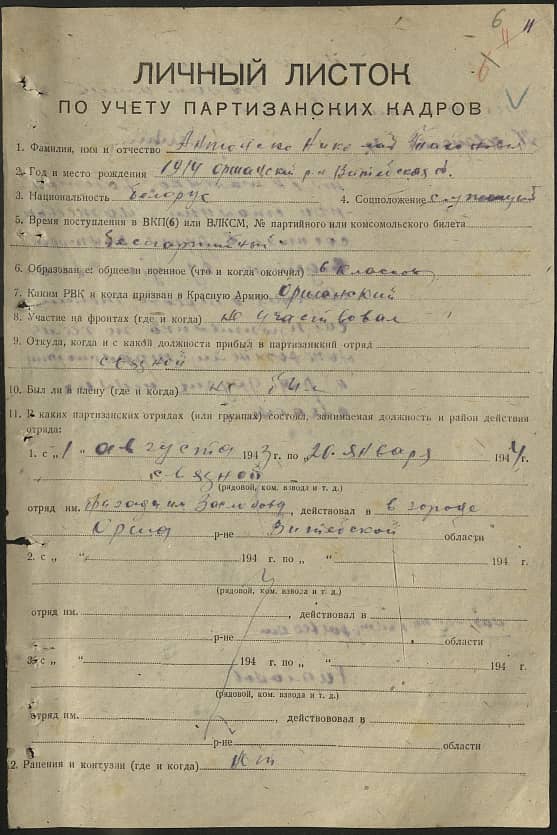 6
11
ЛИЧНЫЙ ЛИСТОК
ПО УЧЕТУ ПАРТИЗАНСКИХ КАДРОВ
1. Фамилия, имя и отчество Николай
2. Год и место рождения 1914 Оршанский р-н Витебская об.
3. Национальность Белорус 4. Соцположение служащий
5. Время поступления в ВКП(б) или ВЛКСМ, № партийного или комсомольского билета
беспартийный
6. Образование: общее и военное (что и когда окончил) 6 классов
7. Каким РВК и когда призван в Красную Армию Оршанский
8. Участие на фронтах (где и когда) не участвовал
9. Откуда, когда и с какой должности прибыл в партизанский отряд
связной
10. Был ли в плену (где и когда) не был
11. В каких партизанских отрядах (или группах) состоял, занимаемая должность и район действия
отряда:
1. с „1 “ августа 1943 г. по „20 “ января 1944 г.
связной
(рядовой, ком. взвода и т. д.)
отряд им. Заслонова, действовал в в городе
Орша р-не Витебской области
2. с „ “ 194 г. по „ “ 194 г.
(рядовой, ком. взвода и т. д.)
отряд им. , действовал в
р-не области
3. с „ “ 194 г. по „ “ 194 г.
(рядовой, ком. взвода и т. д.)
отряд им. , действовал в
р-не области
2. Ранения и контузии (где и когда) нет